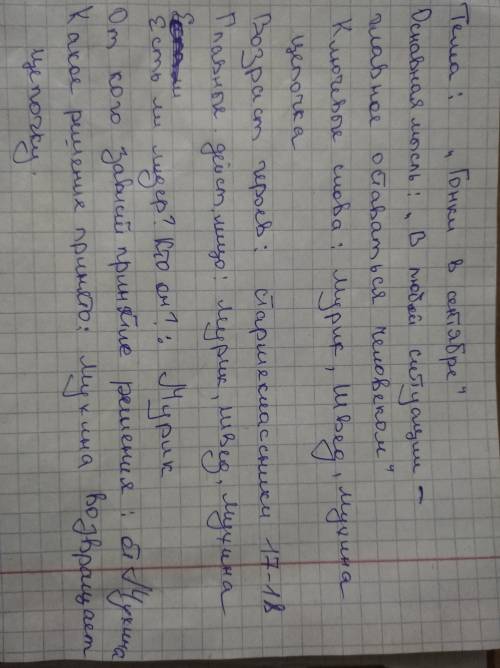 Тема: „Гонки в сентябре"
Основная мысль: „В любой ситуации –
главное оставаться человеком"
Ключевые слова: Мурик, Швед, Мухина
цепочка
Возраст героев: старшеклассники 17-18
Главные дейст. лицо: Мурик, Швед, Мухина
Есть ли лидер? Кто он?: Мурик
От кого зависит принятие решения: от Мухина
Какое решение принято: Мухина возвращает
цепочку.